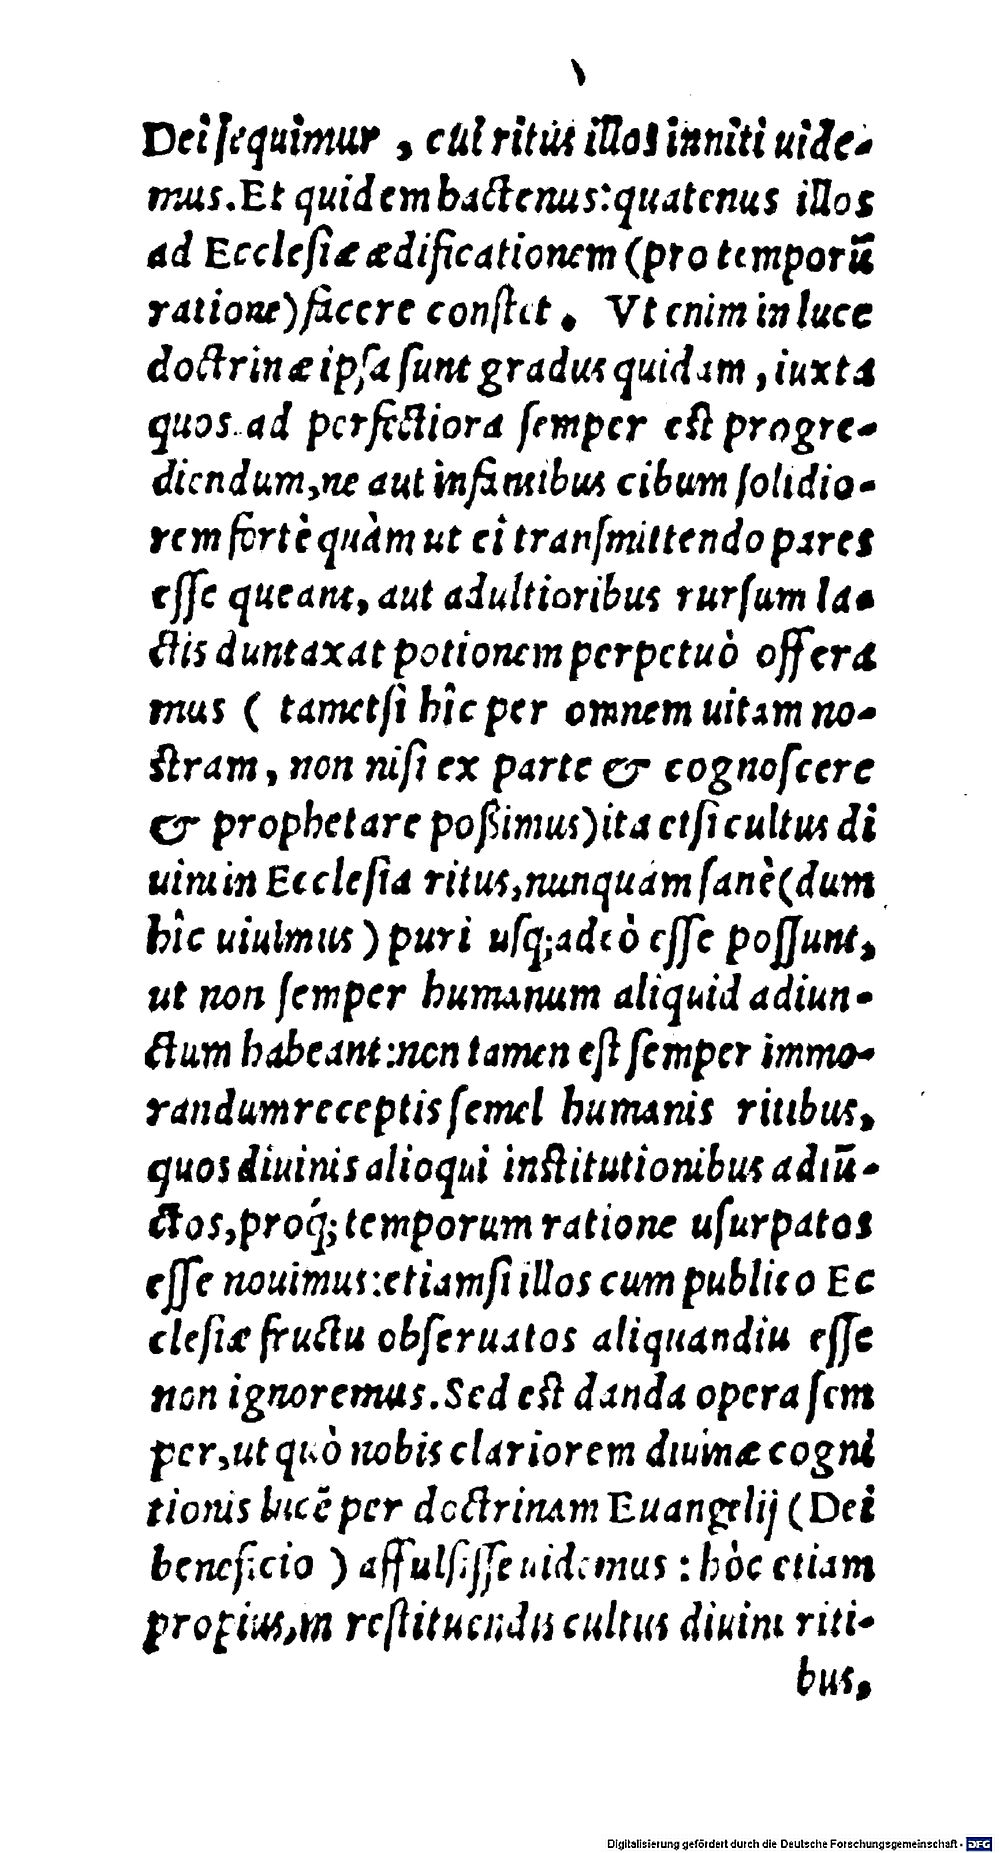 Dei ſequimur , cui ritus illos inniti uide-
mus. Et quidem hactenus: quatenus illos
ad Eccleſiæ ædificationem (pro temporū
ratione) facere conſtet . Vt enim in luce
doctrinæ ipſa ſunt gradus quidam , iuxta
quos ad perfectiora ſemper eſt progre-
diendum, ne aut infantibus cibum ſolidio-
rem fortè quàm ut ei tranſmittendo pares
eſſe queant, aut adultioribus rurſum la-
ctis duntaxat potionem perpetuò offera
mus ( tametſi hîc per omnem uitam no-
ſtram , non niſi ex parte & cognoſcere
& prophetare poßimus) ita etſi cultus di
uini in Eccleſia ritus, nunquam ſanè (dum
hîc uiuimus ) puri uſq; adeò eſſe poſſunt,
ut non ſemper humanum aliquid adiun-
ctum habeant: non tamen eſt ſemper immo-
randum receptis ſemel humanis ritibus,
quos diuinis alioqui inſtitutionibus adiū-
ctos, proq́; temporum ratione uſurpatos
eſſe nouimus: etiamſi illos cum publico Ec
cleſiæ fructu obſeruatos aliquandiu eſſe
non ignoremus. Sed eſt danda opera ſem
per, ut quò nobis clariorem diuinæ cogni
tionis lucē per doctrinam Euangelij (Dei
beneficio ) affulſiſſe uidemus : hòc etiam
propius, in reſtituendis cultus diuini riti-
bus,
Digitalisierung gefördert durch die Deutsche Forschungsgemeinschaft - DFG